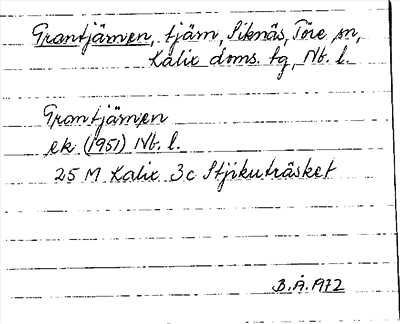 Grantjärnen, tjärn, Siknäs, Töre sn,
Kalix doms. tg, Nb. l.
Grantjärnen
ek (1951) Nb. l.
25 M Kalix 3c Stjikuträsket
B.Å. 1972